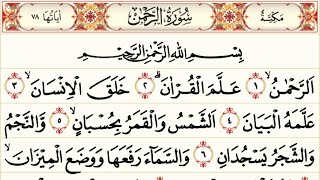 مَكِّيَّةٌ سُورَةُ الرَّحْمٰنِ آيَاتُهَا ٧٨
بِسْمِ اللّٰهِ الرَّحْمٰنِ الرَّحِيْمِ
اَلرَّحْمٰنُۙ ﴿١﴾ عَلَّمَ الْقُرْاٰنَۗ ﴿٢﴾ خَلَقَ الْاِنْسَانَۙ ﴿٣﴾
عَلَّمَهُ الْبَيَانَ ﴿٤﴾ اَلشَّمْسُ وَالْقَمَرُ بِحُسْبَانٍۙ ﴿٥﴾ وَّالنَّجْمُ
وَالشَّجَرُ يَسْجُدَانِ ﴿٦﴾ وَالسَّمَاۤءَ رَفَعَهَا وَوَضَعَ الْمِيْزَانَۙ ﴿٧﴾